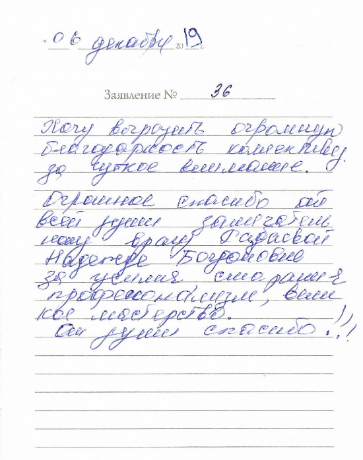 06 декабря 2019 г.
Заявление № 36
Хочу выразить огромную
благодарность коллективу
за чуткое внимание.
Огромное спасибо от
всей души замечатель
ному врачу
Надежде Богдановне
за усилия старания
профессионализм, вели
кое мастерство.
От души спасибо!!!